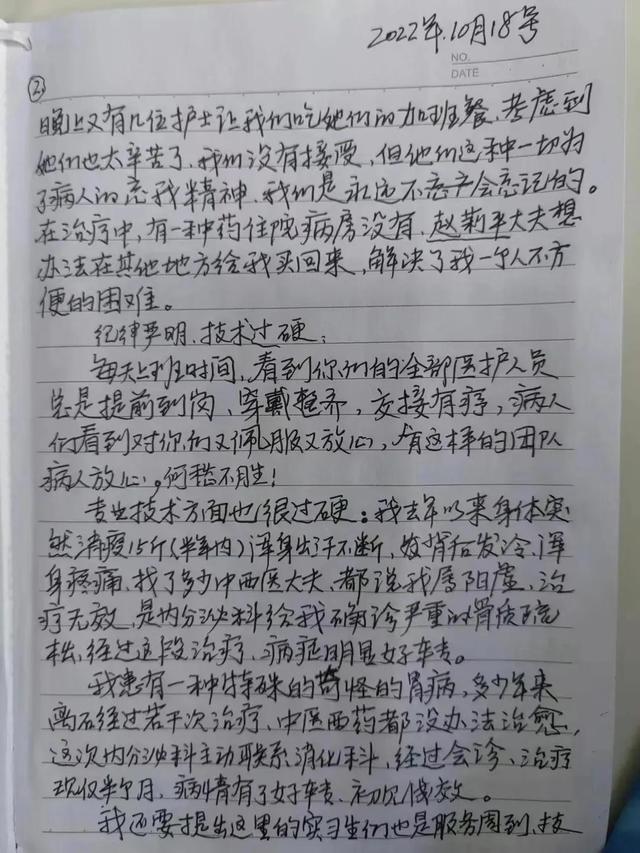 2022年.10月18号
NO.
DATE
②
晚上又有几位护士让我们吃她们的加班餐、考虑到
她们也太辛苦了、我们没有接受，但他们这种一切为
了病人的忘我精神、我们是永远不忘会忘记的。
在治疗中，有一种药住院病房没有、赵莉平大夫想
办法在其他地方给我买回来，解决了我一个人不方
便的困难。
纪律严明、技术过硬：
每天上班时间，看到你们的全部医护人员
总是提前到岗、穿戴整齐，交接有序，病人
们看到对你们又佩服又放心，有这样的团队
病人放心，何愁不胜！
专业技术方面也很过硬：我去年以来身体突
然消瘦15斤(半年内)浑身出汗不断，后背发冷、浑
身疼痛、找了多少中西医大夫、都说我属阳虚、治
疗无效，是内分泌科给我确诊严重的骨质疏
松、经过这段治疗、病症明显好转。
我患有一种特殊的奇怪的胃病，多少年来
离石经过若干次治疗、中医西药都没办法治愈，
这次内分泌科主动联系消化科，经过会诊、治疗
现仅半个月，病情有了好转、初次见效。
我还要提出这里的实习生们也是服务周到、技